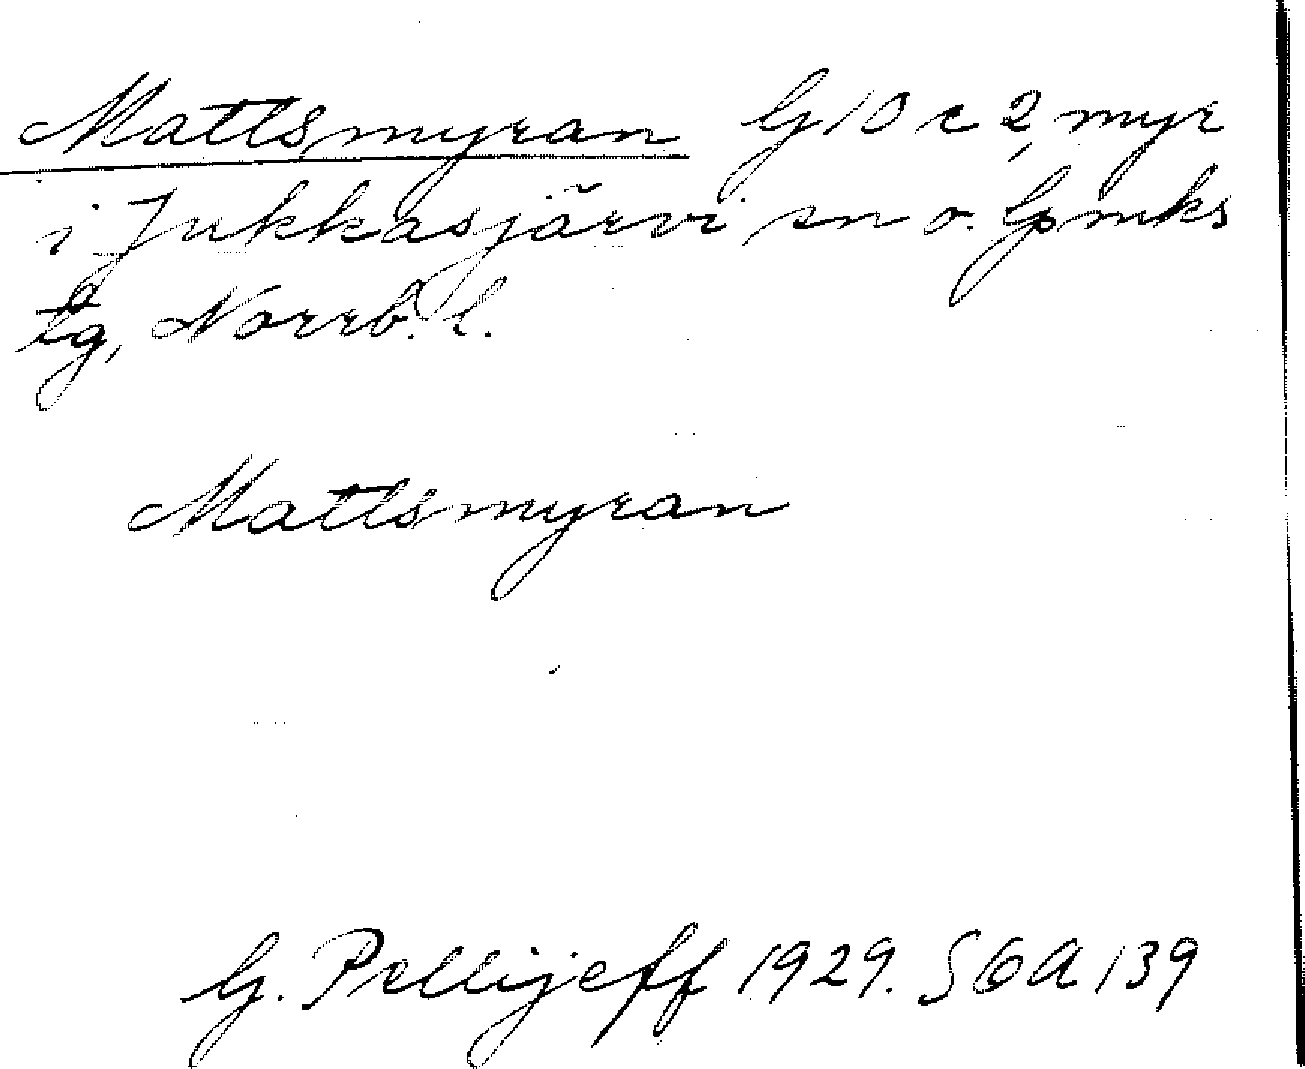 Mattsmyran G 10 c 2, myr
i Jukkasjärvi sn o. lpmks
tg, Norrb. l.
Mattsmyran
G. Pellijeff 1929. SOA 139